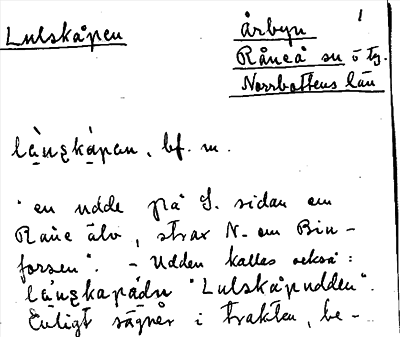 Lulskåpen
Årbyn 1
Råneå sn ö tg.
Norrbottens län
bf. m.
"en udde på S. sidan om
Råne älv, strax N. om Bin-
forsen". - Udden kallas också:
"Lulskåpudden".
Enligt sägner i trakten, be-